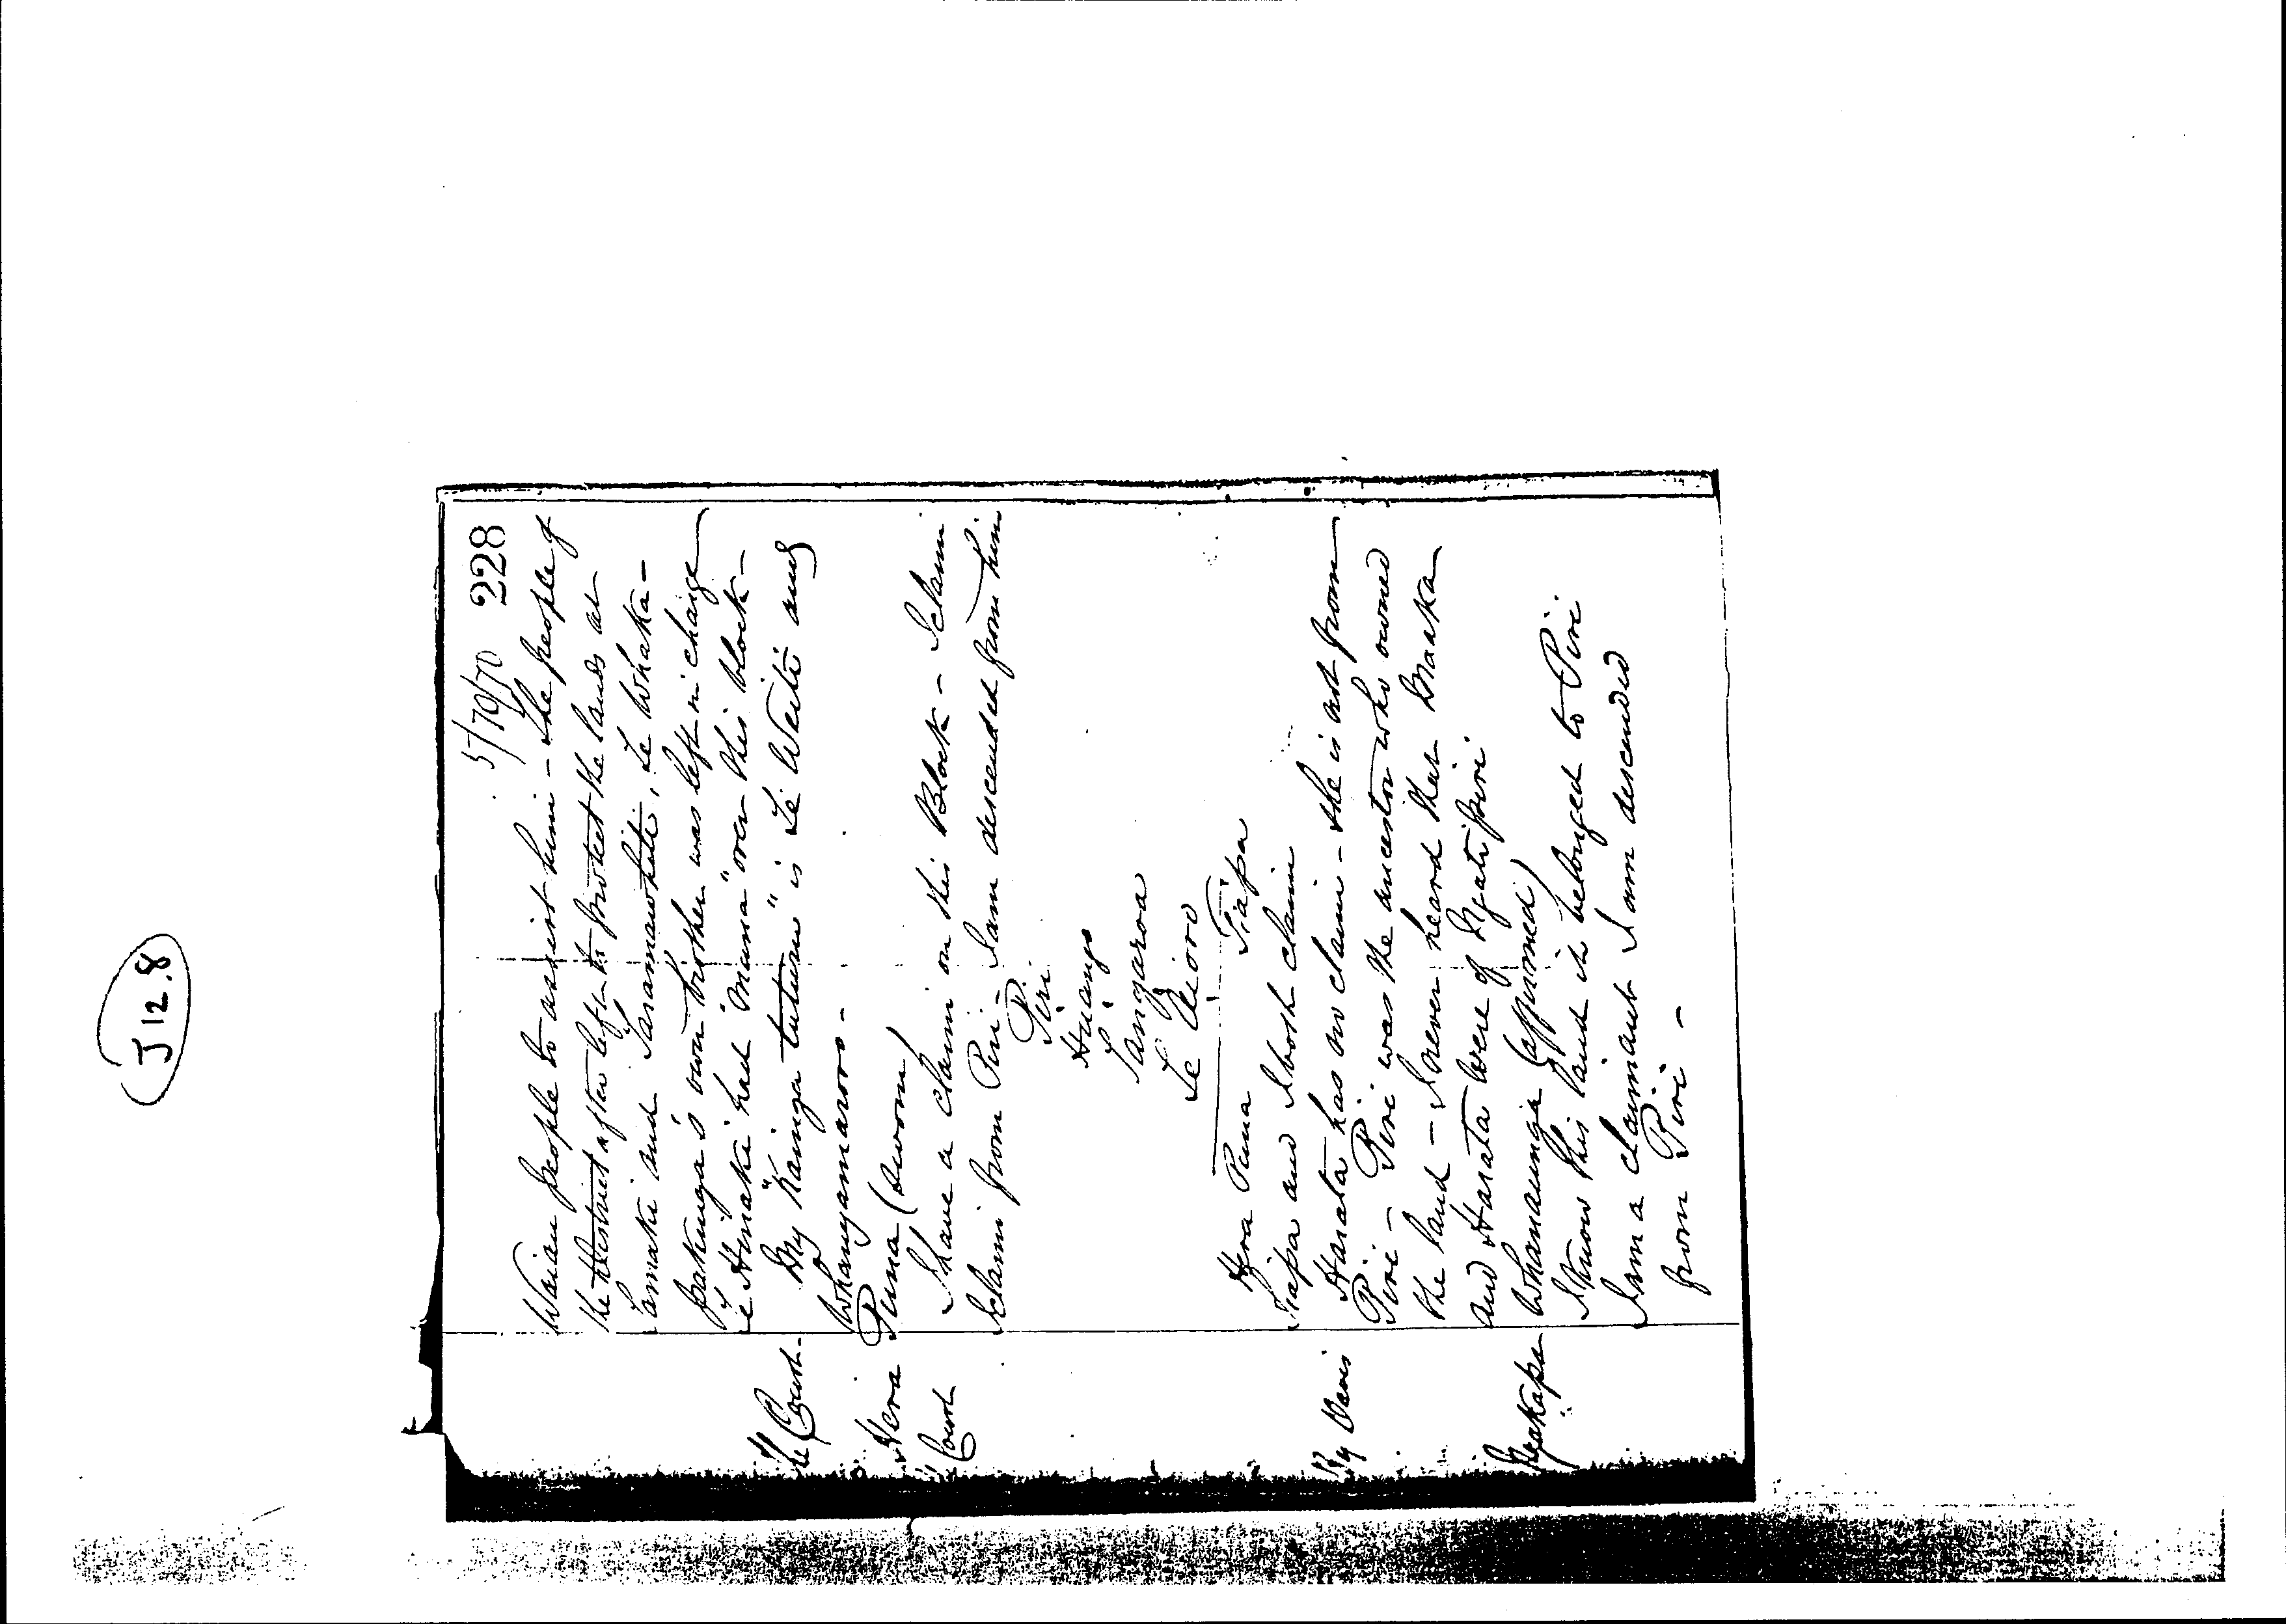 J 12.8
5/10/70 228
Waiau people to assist him - The people of
the district after left to protect the lands at
Tamaki and Taramawhiti, Te Whaka-
pakinga's own brother was left in charge
Te Hinaki had "Mana" over this block -
Court. My "Kainga tuturu" is Te Weiti and
Whangamaroro -
Hera Puna (sworn)
Court I have a claim on this Block - I claim
I claim from Piri - I am descended from him
Piri
Huango
Tangaroa
Te Aioro
Hera Puna Tiapa
Tiapa and I both claim
By Davis Harata has no claim - she is not from
Piri - Piri was the ancestor who owned
the land - I never heard that
and Harata were of Ngatipiri
Ngakapa Whanaunga (affirmed)
I know this land it belonged to Piri
I am a claimant I am descended
from Piri -